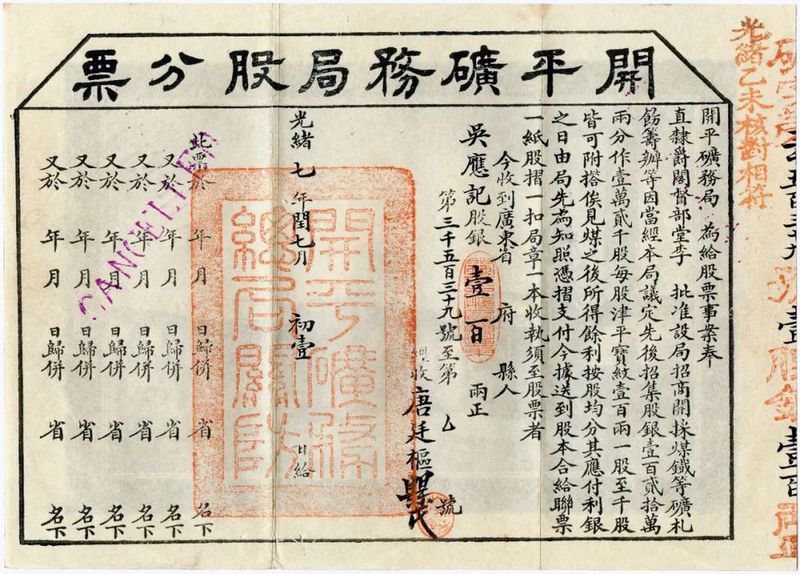 開平礦務局股分票
光緒乙未核對相符
開平礦務局 為給股票事案奉
直隸爵閣督部堂李 批准設局招商開採煤鐵等礦札
飭籌辦等因當經本局議定先後招集股銀壹百貳拾萬
兩分作壹萬貳千股每股津平寶紋壹百兩一股至千股
皆可附搭俟見煤之後所得餘利按股均分其應付利銀
之日由局先為知照憑摺支付今據送到股本合給聯票
一紙股摺一扣局章一本收執須至股票者
今收到廣東省 府 縣人
吳應記股銀 壹百 兩正
第三千五百三十九號至第 號
總收唐廷樞
光緒七年閏七月 初壹 日給
開平礦務
總局關防
此票於 年 月 日歸併 省 名下
又於 年 月 日歸併 省 名下
又於 年 月 日歸併 省 名下
又於 年 月 日歸併 省 名下
又於 年 月 日歸併 省 名下
又於 年 月 日歸併 省 名下
CANCELLED